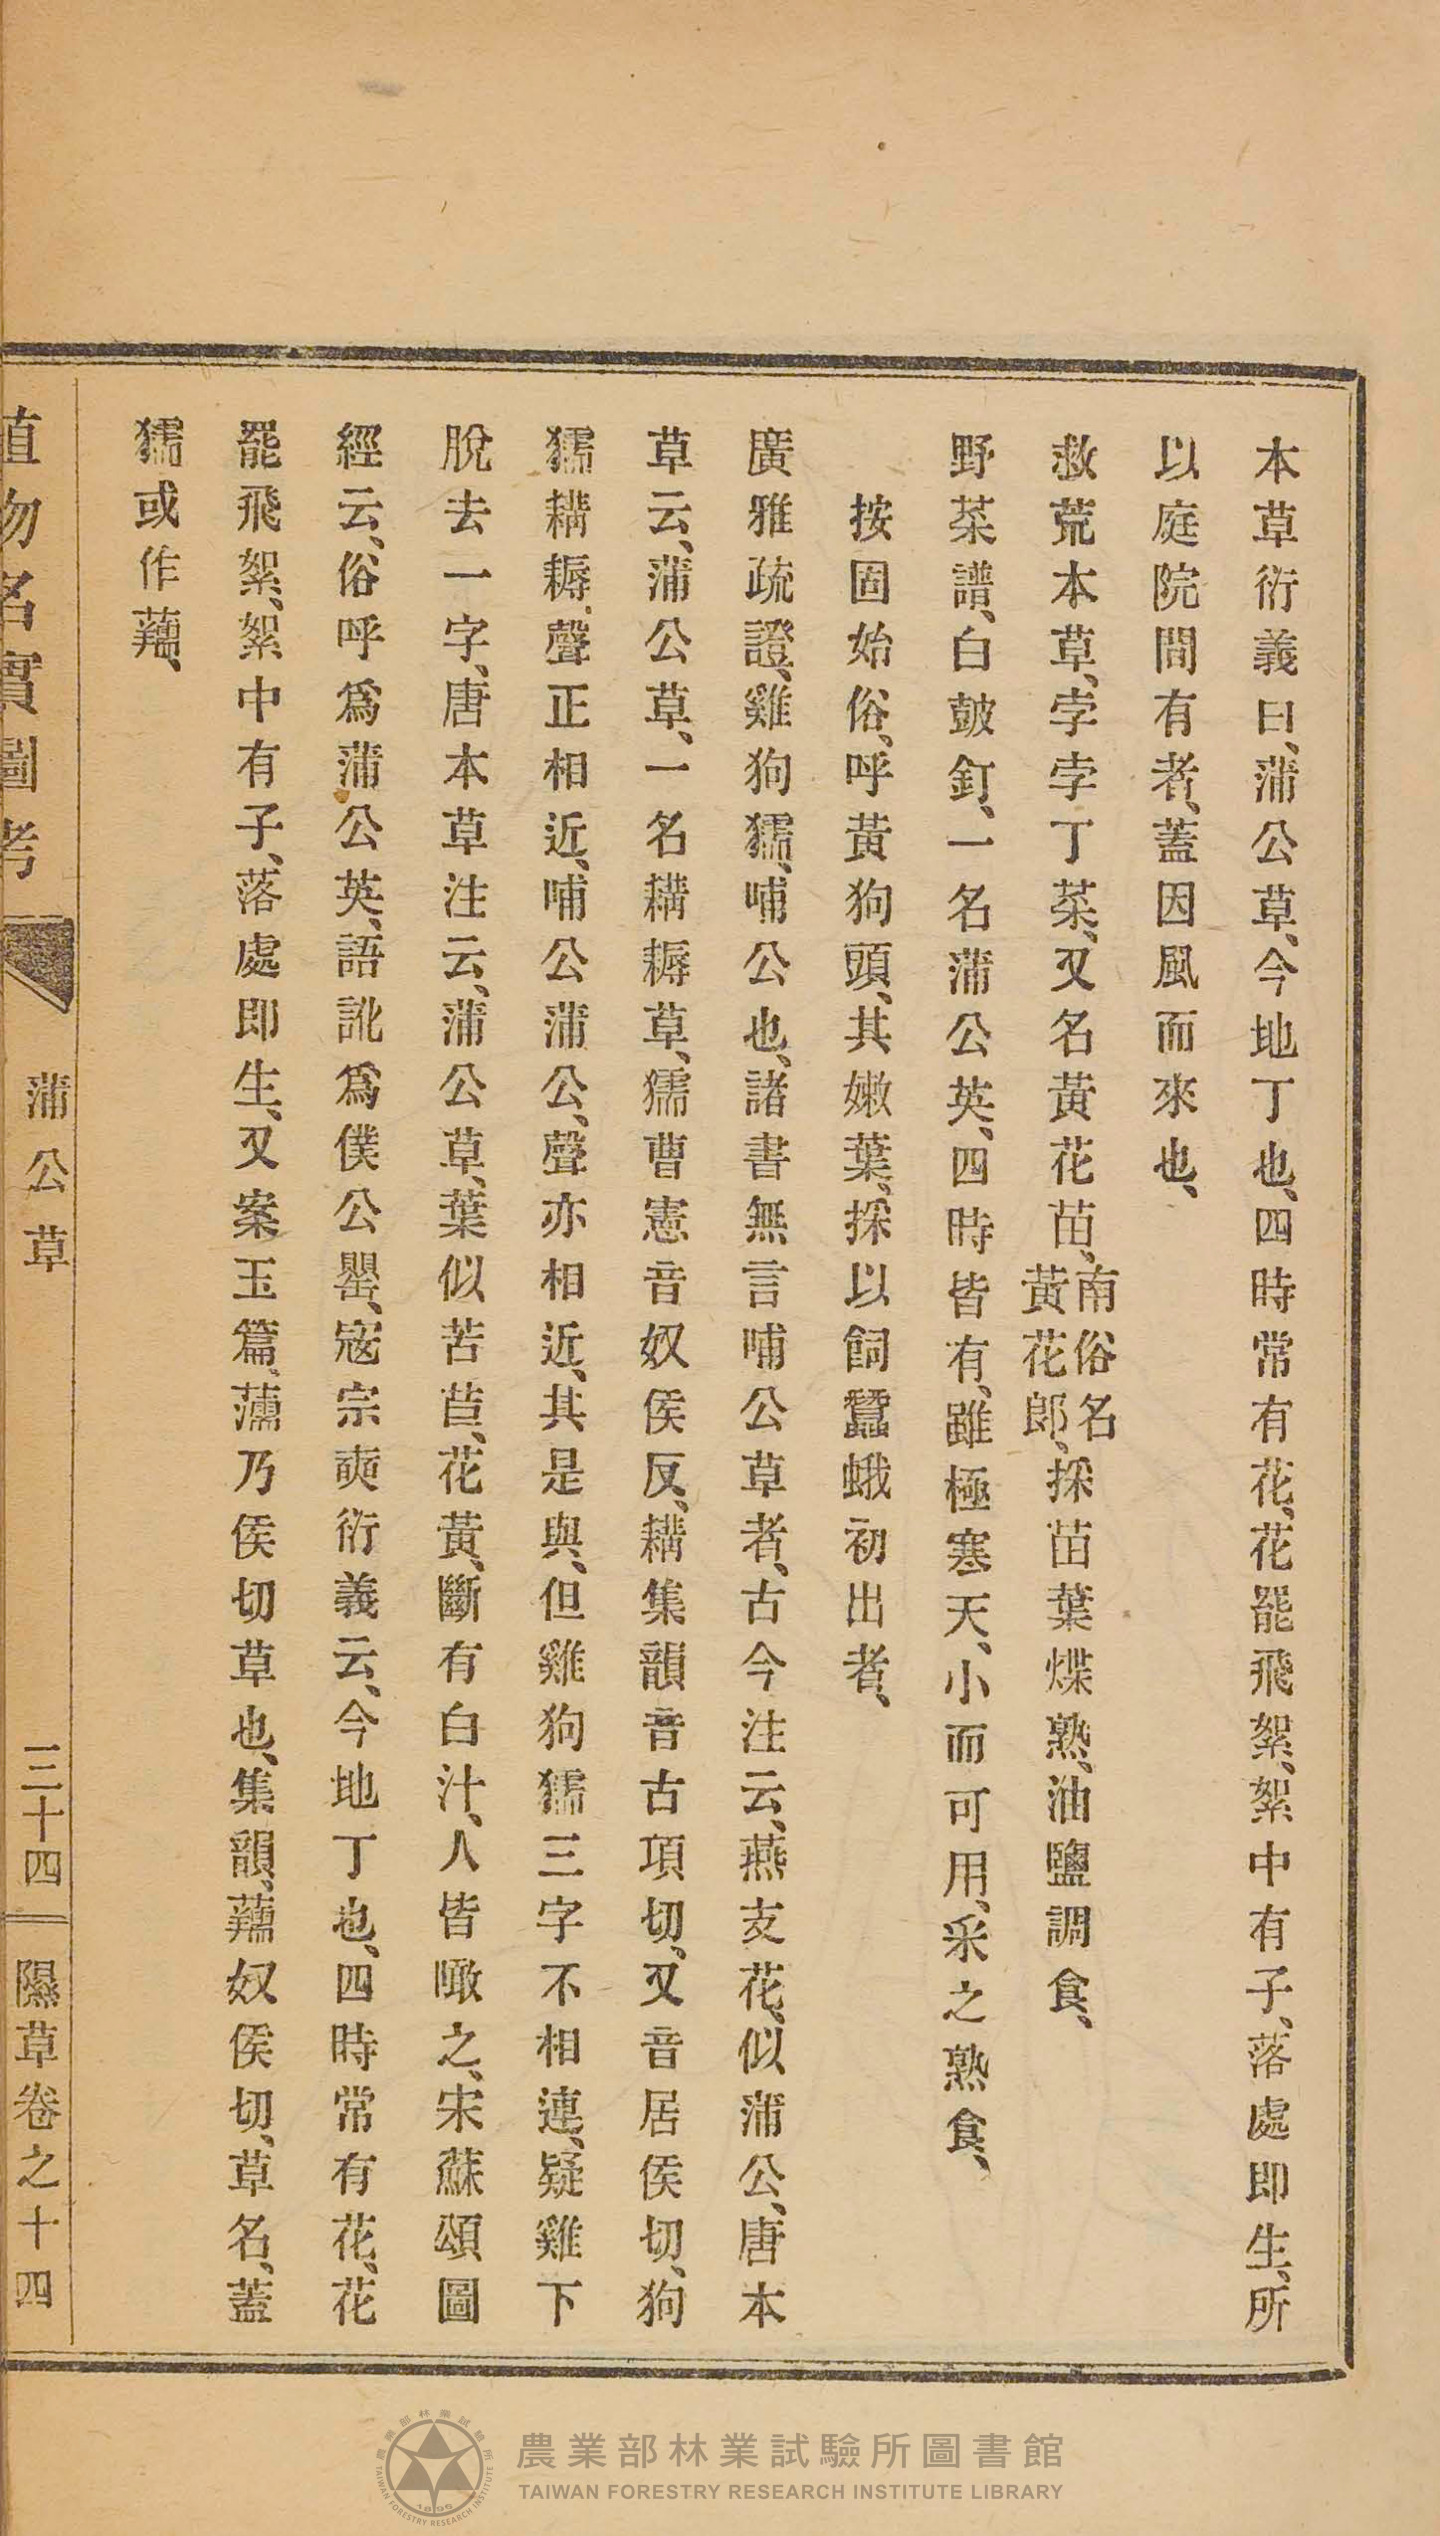 本草衍義曰、蒲公草、今地丁也、四時常有花、花罷飛絮、絮中有子、落處即生、所
以庭院間有者、蓋因風而來也、
救荒本草、孛孛丁菜、又名黃花苗、南俗名黃花郎、採苗葉煠熟、油鹽調食、
野菜譜、白鼓釘、一名蒲公英、四時皆有、雖極寒天、小而可用、采之熟食、
按固始俗、呼黃狗頭、其嫩葉、採以飼蠶蛾初出者、
廣雅疏證、雞狗獳、哺公也、諸書無言哺公草者、古今注云、燕支花、似蒲公、唐本
草云、蒲公草、一名耩耨草、獳曹憲音奴侯反、耩集韻音古項切、又音居侯切、狗
獳耩耨、聲正相近、哺公蒲公、聲亦相近、其是與、但雞狗獳三字不相連、疑雞下
脫去一字、唐本草注云、蒲公草、葉似苦苣、花黃、斷有白汁、人皆噉之、宋蘇頌圖
經云、俗呼為蒲公英、語訛為僕公罌、寇宗奭衍義云、今地丁也、四時常有花、花
罷飛絮、絮中有子、落處即生、又案玉篇、乃侯切草也、集韻、奴侯切、草名、蓋
獳或作
植物名實圖考 蒲公草 三十四 隰草卷之十四
農業部林業試驗所圖書館
TAIWAN FORESTRY RESEARCH INSTITUTE LIBRARY
農業部林業試驗所
TAIWAN FORESTRY RESEARCH INSTITUTE
1895